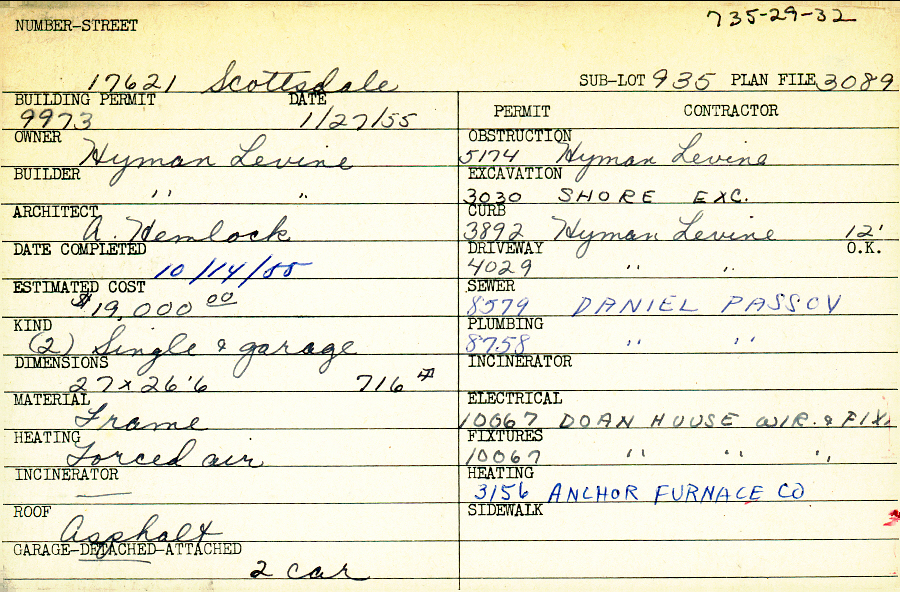 735-29-32
NUMBER-STREET
17621 Scottsdale
SUB-LOT 935 PLAN FILE 3089
BUILDING PERMIT DATE
9973 1/27/55
OWNER
Hyman Levine
BUILDER
" "
ARCHITECT
A. Hemlock
DATE COMPLETED
10/14/55
ESTIMATED COST
$19,000 00
KIND
(2) Single & garage
DIMENSIONS
27 x 26'6 716 #
MATERIAL
Frame
HEATING
Forced air
INCINERATOR
—
ROOF
Asphalt
GARAGE-DETACHED-ATTACHED
2 car
PERMIT CONTRACTOR
OBSTRUCTION
5174 Hyman Levine
EXCAVATION
3030 SHORE EXC.
CURB
3892 Hyman Levine 12'
DRIVEWAY O.K.
4029 " "
SEWER
8579 DANIEL PASSOV
PLUMBING
8758 " "
INCINERATOR
ELECTRICAL
10067 DOAN HOUSE WIR. & FIX.
FIXTURES
10067 " " "
HEATING
3156 ANCHOR FURNACE CO
SIDEWALK